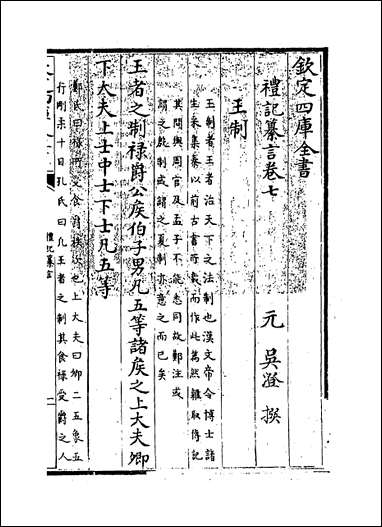 欽定四庫全書
禮記纂言卷七
元 吳澄 撰
王制
王制者王者治天下之法制也漢文帝令博士諸
生采集秦以前古書所載而作此篇然雜取傳記
其間與周官及孟子不能悉同故鄭注或
謂之殷制或謂之夏制亦意之而已矣
王者之制祿爵公侯伯子男凡五等諸侯之上大夫卿
下大夫上士中士下士凡五等
鄭氏曰祿所受食爵秩次也上大夫曰卿二五象五
行剛柔十日孔氏曰凡王者之制其食祿受爵之人
禮記纂言
一